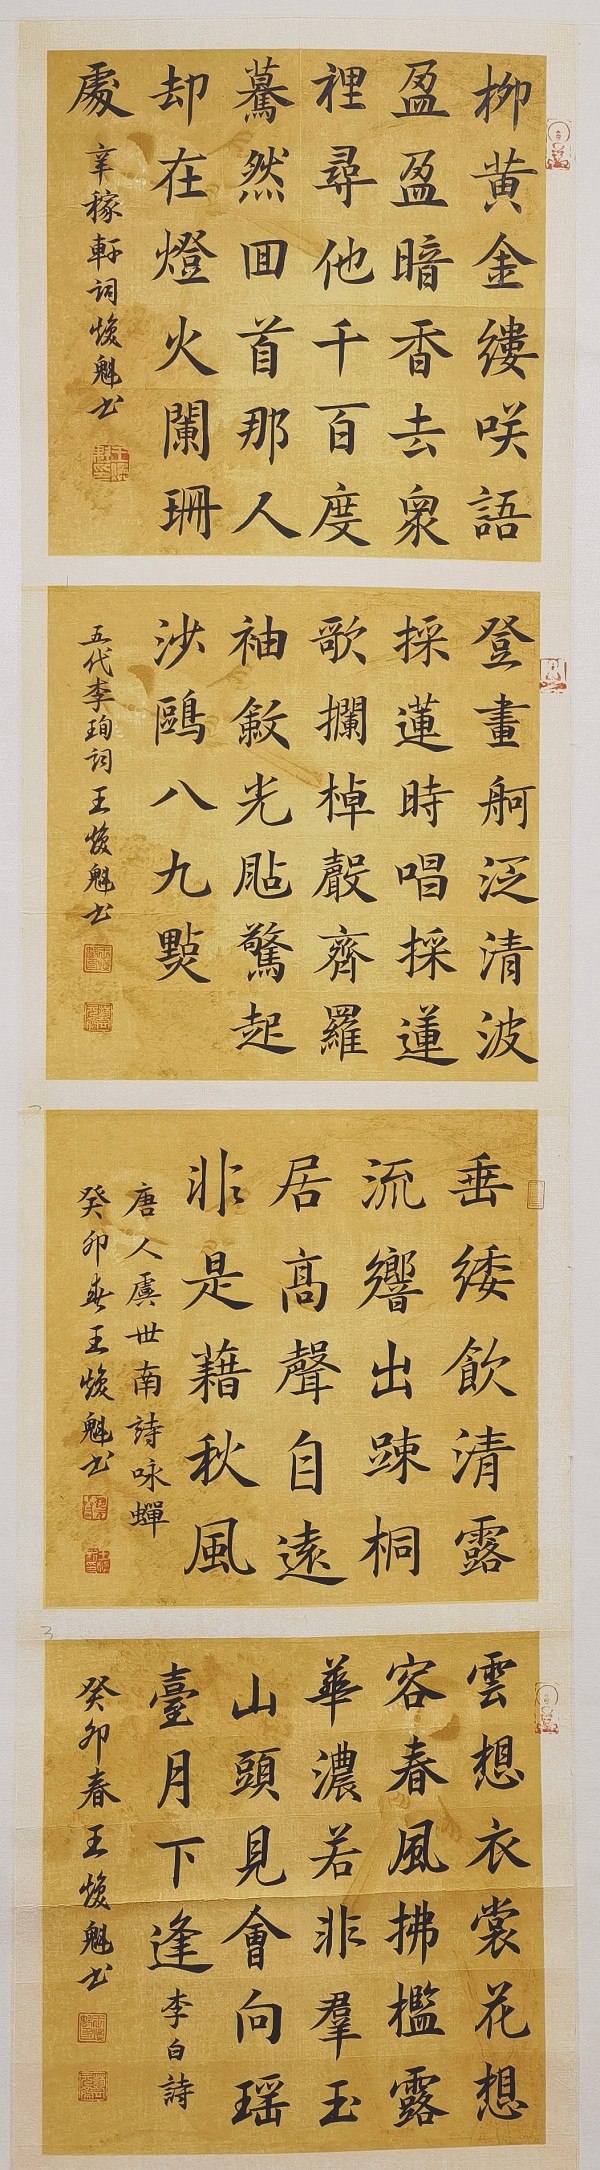 柳黄金縷咲語
盈盈暗香去衆
裡尋他千百度
驀然囬首那人
却在燈火闌珊
處
辛稼軒詞焕魁书
登畫舸泛清波
採蓮時唱採蓮
歌攔棹聲齊羅
袖斂光颭驚起
沙鷗八九點
五代李珣詞王焕魁书
垂緌飲清露
流響出踈桐
居髙聲自遠
非是藉秋風
唐人虞世南詩咏蟬
癸卯春王焕魁书
雲想衣裳花想
容春風拂檻露
華濃若非羣玉
山頭見會向瑶
臺月下逢
李白詩
癸卯春王焕魁书